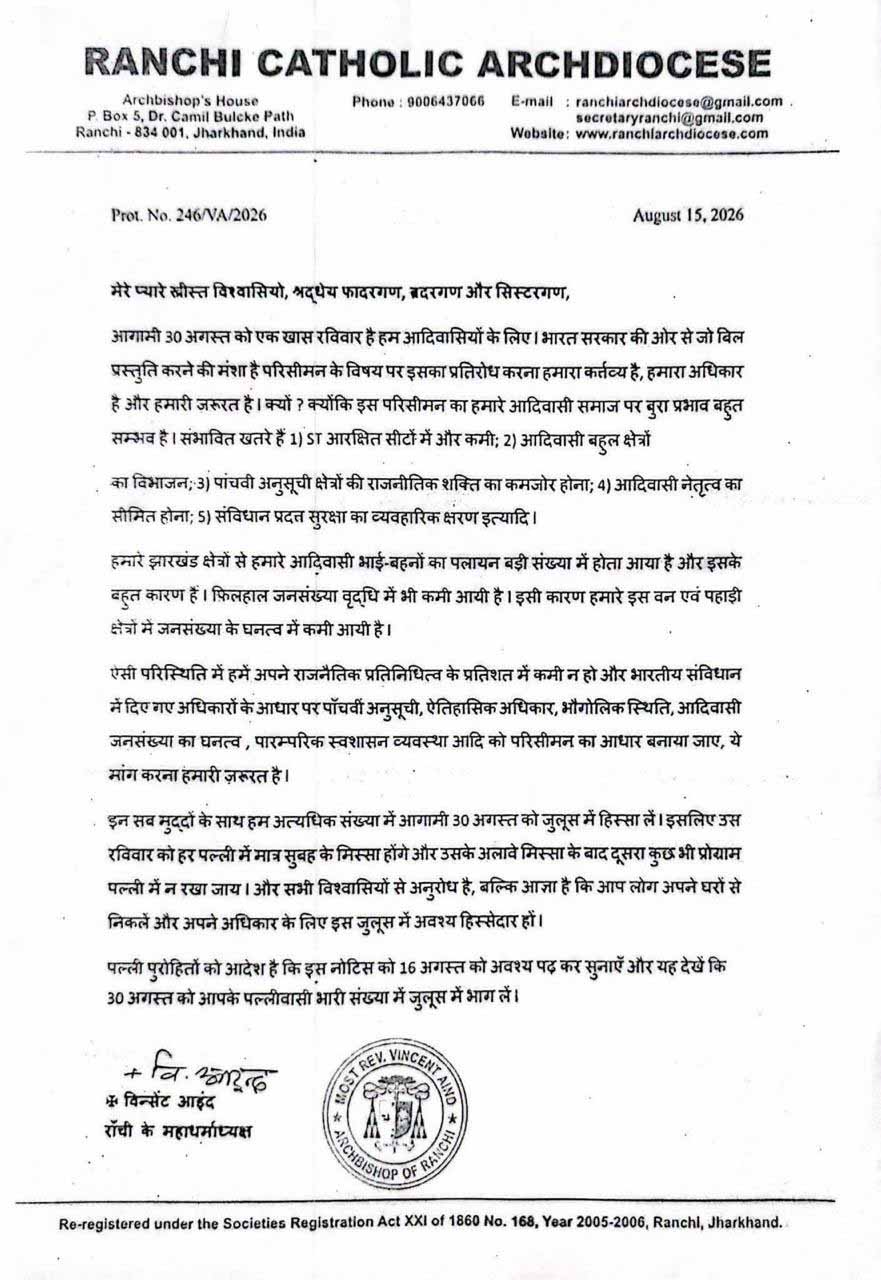 RANCHI CATHOLIC ARCHDIOCESE
Archbishop's House
P. Box 5, Dr. Camil Bulcke Path
Ranchi - 834 001, Jharkhand, India
Phone : 9006437066
E-mail : ranchiarchdiocese@gmail.com
secretaryranchi@gmail.com
Website: www.ranchiarchdiocese.com
Prot. No. 246/VA/2026
August 15, 2026
मेरे प्यारे ख्रीस्त विश्वासियो, श्रद्धेय फादरगण, ब्रदरगण और सिस्टरगण,
आगामी 30 अगस्त को एक खास रविवार है हम आदिवासियों के लिए। भारत सरकार की ओर से जो बिल
प्रस्तुति करने की मंशा है परिसीमन के विषय पर इसका प्रतिरोध करना हमारा कर्तव्य है, हमारा अधिकार
है और हमारी जरूरत है। क्यों ? क्योंकि इस परिसीमन का हमारे आदिवासी समाज पर बुरा प्रभाव बहुत
सम्भव है। संभावित खतरे हैं 1) ST आरक्षित सीटों में और कमी; 2) आदिवासी बहुल क्षेत्रों
का विभाजन; 3) पांचवी अनुसूची क्षेत्रों की राजनीतिक शक्ति का कमजोर होना; 4) आदिवासी नेतृत्व का
सीमित होना; 5) संविधान प्रदत सुरक्षा का व्यवहारिक क्षरण इत्यादि।
हमारे झारखंड क्षेत्रों से हमारे आदिवासी भाई-बहनों का पलायन बड़ी संख्या में होता आया है और इसके
बहुत कारण हैं। फ़िलहाल जनसंख्या वृद्धि में भी कमी आयी है। इसी कारण हमारे इस वन एवं पहाड़ी
क्षेत्रों में जनसंख्या के घनत्व में कमी आयी है।
ऐसी परिस्थिति में हमें अपने राजनैतिक प्रतिनिधित्व के प्रतिशत में कमी न हो और भारतीय संविधान
में दिए गए अधिकारों के आधार पर पाँचवीं अनुसूची, ऐतिहासिक अधिकार, भौगोलिक स्थिति, आदिवासी
जनसंख्या का घनत्व , पारम्परिक स्वशासन व्यवस्था आदि को परिसीमन का आधार बनाया जाए, ये
मांग करना हमारी ज़रूरत है।
इन सब मुद्दों के साथ हम अत्यधिक संख्या में आगामी 30 अगस्त को जुलूस में हिस्सा लें। इसलिए उस
रविवार को हर पल्ली में मात्र सुबह के मिस्सा होंगे और उसके अलावे मिस्सा के बाद दूसरा कुछ भी प्रोग्राम
पल्ली में न रखा जाय। और सभी विश्वासियों से अनुरोध है, बल्कि आज्ञा है कि आप लोग अपने घरों से
निकलें और अपने अधिकार के लिए इस जुलूस में अवश्य हिस्सेदार हों।
पल्ली पुरोहितों को आदेश है कि इस नोटिस को 16 अगस्त को अवश्य पढ़ कर सुनाएँ और यह देखें कि
30 अगस्त को आपके पल्लीवासी भारी संख्या में जुलूस में भाग लें।
+ वि. आइन्द
✠ विन्सेंट आइंद
राँची के महाधर्माध्यक्ष
MOST REV. VINCENT AIND
ARCHBISHOP OF RANCHI
Re-registered under the Societies Registration Act XXI of 1860 No. 168, Year 2005-2006, Ranchi, Jharkhand.